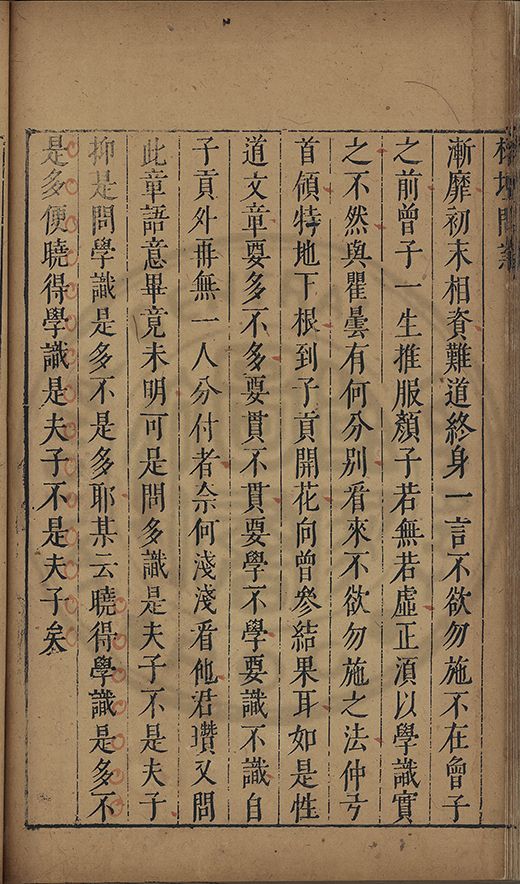 榕壇問業
漸靡初末相資難道終身一言不欲勿施不在曾子
之前曾子一生推服顏子若無若虛正須以學識實
之不然與瞿曇有何分別看來不欲勿施之法仲弓
首領特地下根到子貢開花向曾參結果耳如是性
道文章要多不多要貫不貫要學不學要識不識自
子貢外再無一人分付者柰何淺淺看他君瓚又問
此章語意畢竟未明可是問多識是夫子不是夫子
抑是問學識是多不是多耶某云曉得學識是多不
是多便曉得學識是夫子不是夫子矣